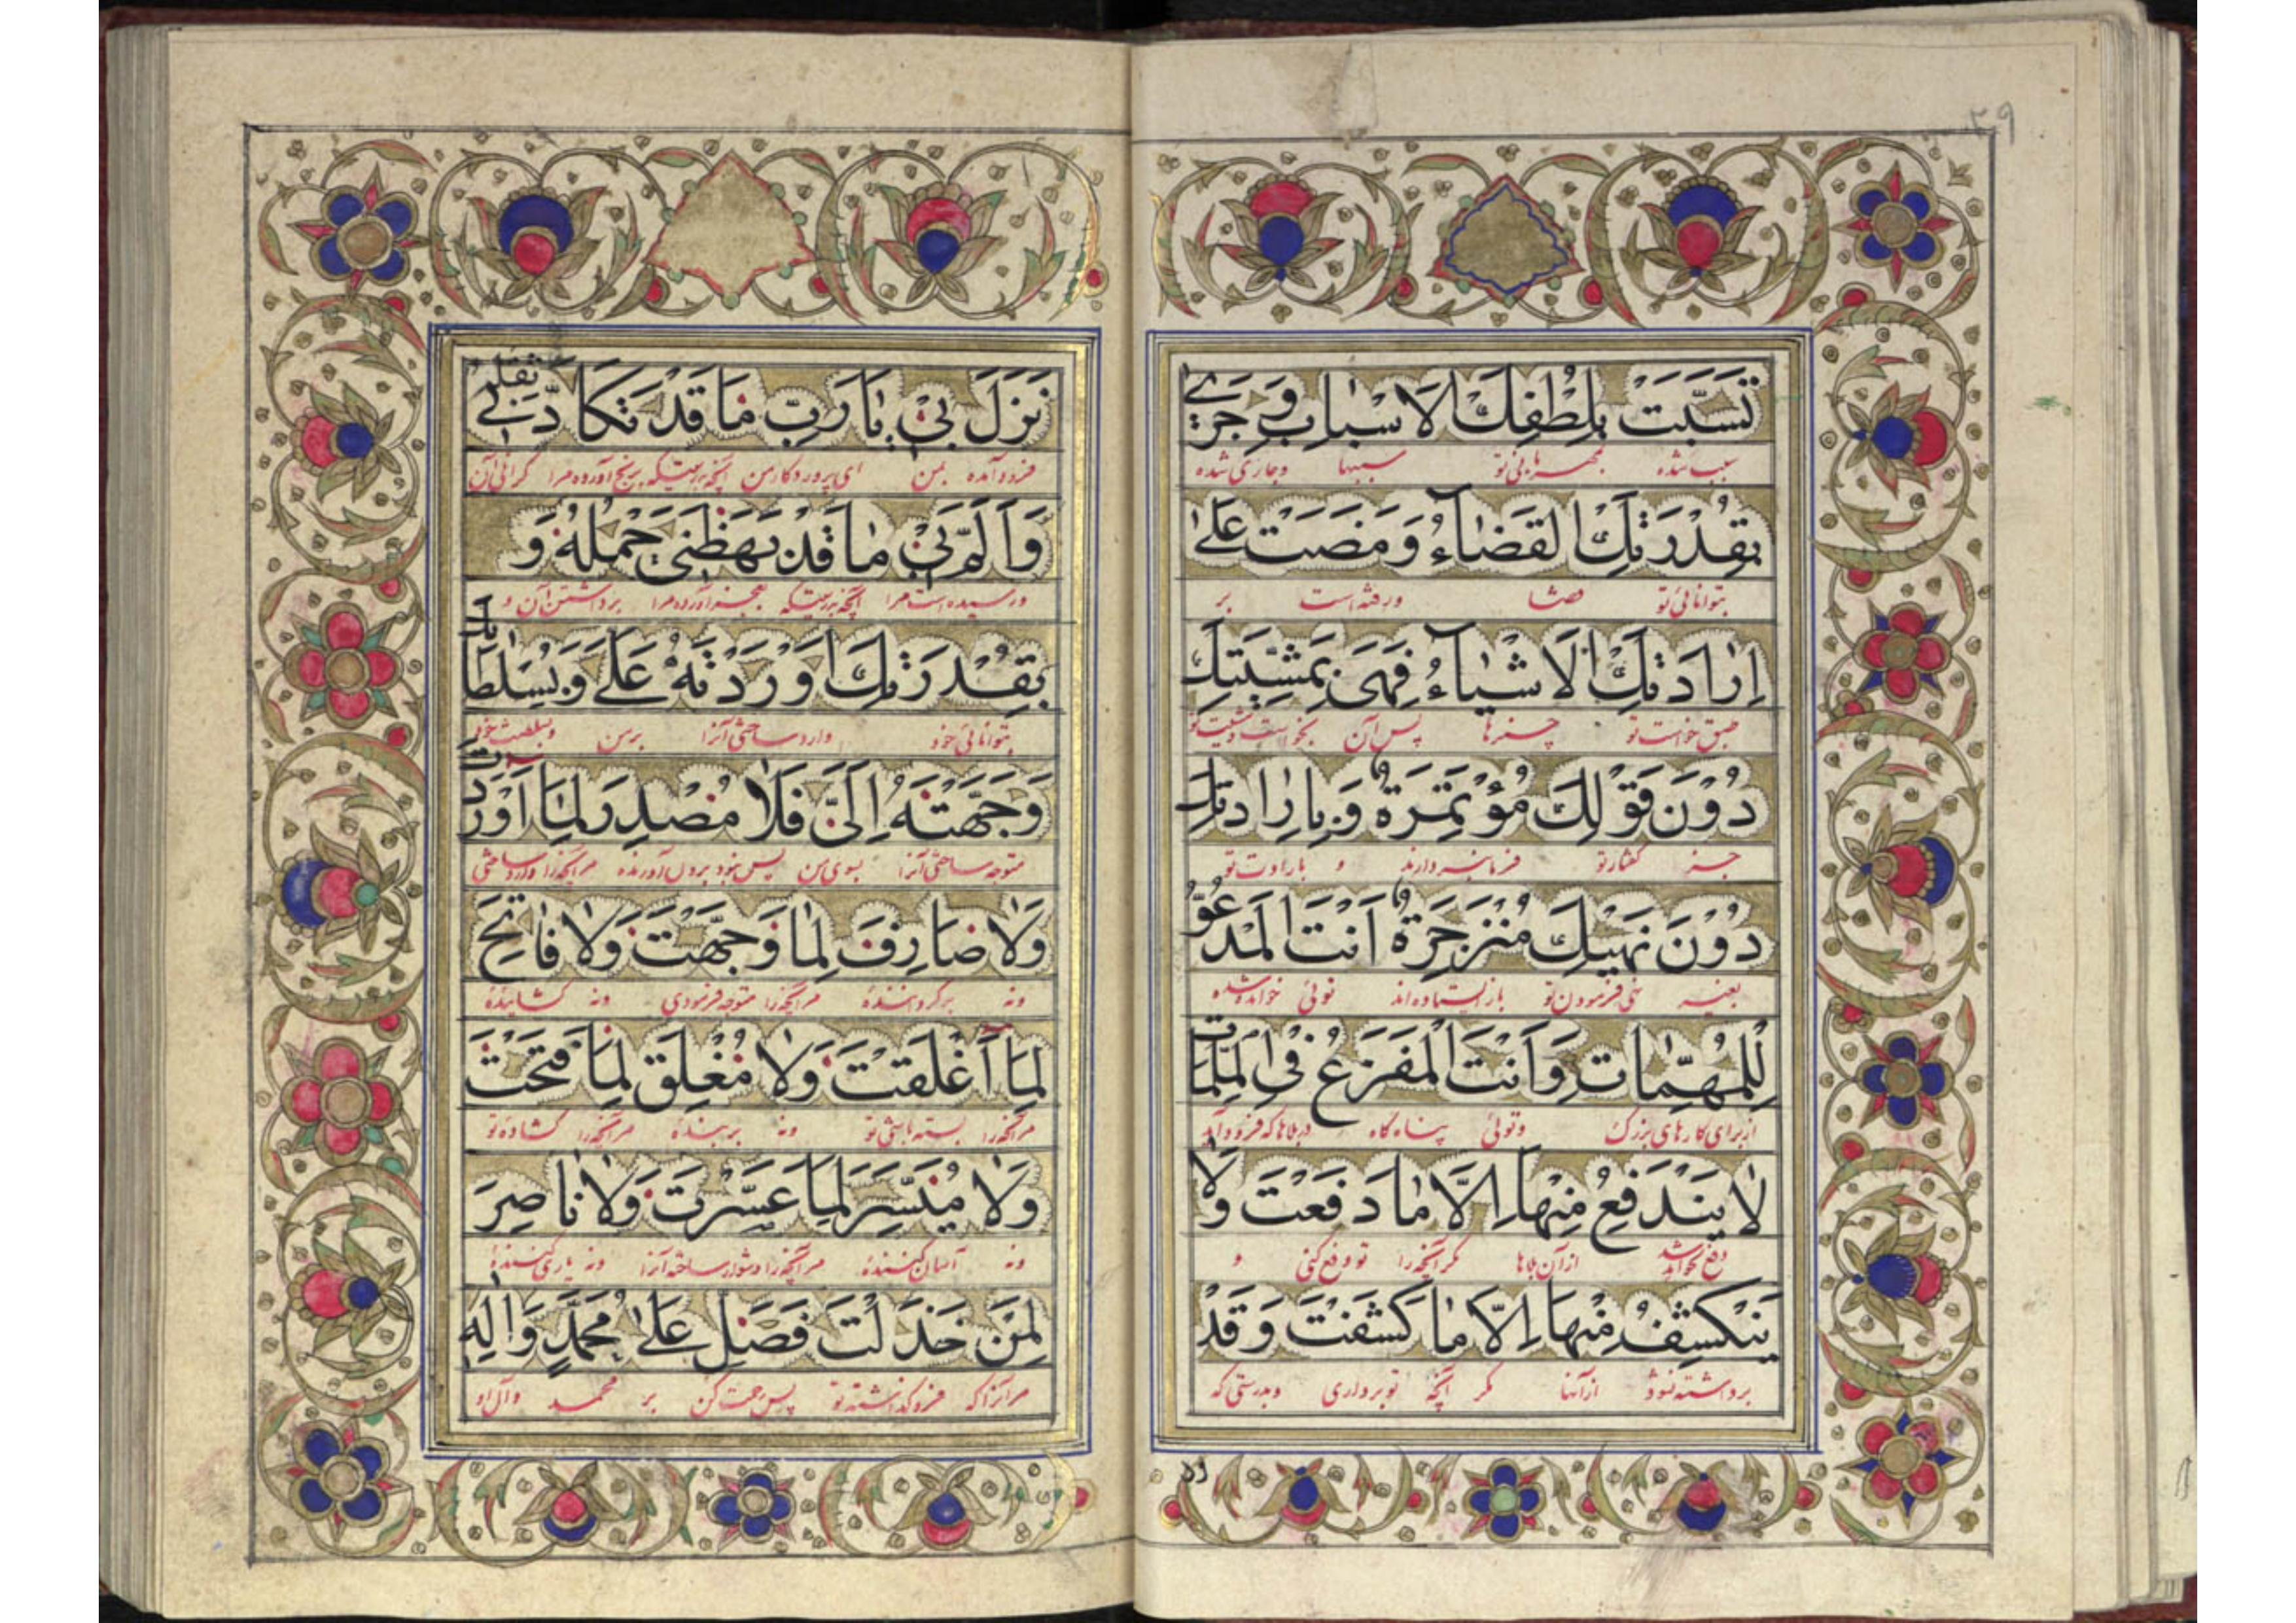 ۲۹
تَسَبَّبَتْ بِلُطْفِكَ الْاَسْبٰابُ وَ جَرىٰ
سبب شده بمهربانی تو سببها وجاری شده
بِقُدْرَتِكَ الْقَضٰاۤءُ وَ مَضَتْ عَلىٰ
بتوانائی تو قضا ورفته است بر
اِرٰادَتِكَ الْاَشْيٰاۤءُ فَهِىَ بِمَشِيَّتِكَ
طبق خواست تو چیزها پس آن بخواست ومشیت تو
دُوْنَ قَوْلِكَ مُؤْتَمِرَةٌ وَ بِاِرٰادَتِكَ
جز گفتار تو فرمانبردارند و بارادت تو
دُوْنَ نَهْيِكَ مُنْزَجِرَةٌ اَنْتَ الْمَدْعُوُّ
بغیر نهی فرمودن تو باز ایستاده اند توئی خوانده شده
لِلْمُهِمّٰاتِ وَ اَنْتَ الْمَفْزَعُ فِى الْمُلِمّٰاتِ
از برای کارهای بزرگ وتوئی پناه گاه در بلاها که فرود آید
لٰا يَنْدَفِعُ مِنْهٰا اِلَّا مٰا دَفَعْتَ وَلٰا
دفع نخواهد شد از آن بلاها مگر آنچه را تو دفع کنی و
يَنْكَشِفُ مِنْهٰا اِلَّا مٰا كَشَفْتَ وَ قَدْ
برداشته نشود از آنها مگر آنچه تو برداری وبدرستی که
نَزَلَ بِىْ يٰا رَبِّ مٰا قَدْ تَكَاَّدَنِىْ ثِقْلُهُ
فرود آمده بمن ای پروردگار من آنچه بدرستیکه برنج آورده مرا گرانی آن
وَ اَلَمَّ بِىْ مٰا قَدْ بَهَظَنِىْ حَمْلُهُ وَ
ورسیده است مرا آنچه بدرستیکه بعجز آورده مرا برداشتن آن و
بِقُدْرَتِكَ اَوْرَدْتَهُ عَلَىَّ وَ بِسُلْطٰانِكَ
بتوانائی خود وارد ساختی آنرا بر من وبسلطنت خود
وَجَّهْتَهُ اِلَىَّ فَلٰا مُصْدِرَ لِمٰا اَوْرَدْتَ
متوجه ساختی آنرا بسوی من پس نبود برون آورنده مر آنچه را وارد ساختی
وَلٰا صٰارِفَ لِمٰا وَجَّهْتَ وَلٰا فٰاتِحَ
ونه برگرداننده مر آنچه را متوجه فرمودی ونه گشاینده
لِمٰا اَغْلَقْتَ وَلٰا مُغْلِقَ لِمٰا فَتَحْتَ
مر آنچه را بسته باشی تو ونه بربنده مر آنچه را گشاده تو
وَلٰا مُيَسِّرَ لِمٰا عَسَّرْتَ وَلٰا نٰاصِرَ
ونه آسان کننده مر آنچه را دشوار ساخته آنرا ونه یاری کننده
لِمَنْ خَذَلْتَ فَصَلِّ عَلىٰ مُحَمَّدٍ وَ اٰلِهِ
مر آنرا که فرو گذاشته تو پس رحمت کن بر محمد وآل او